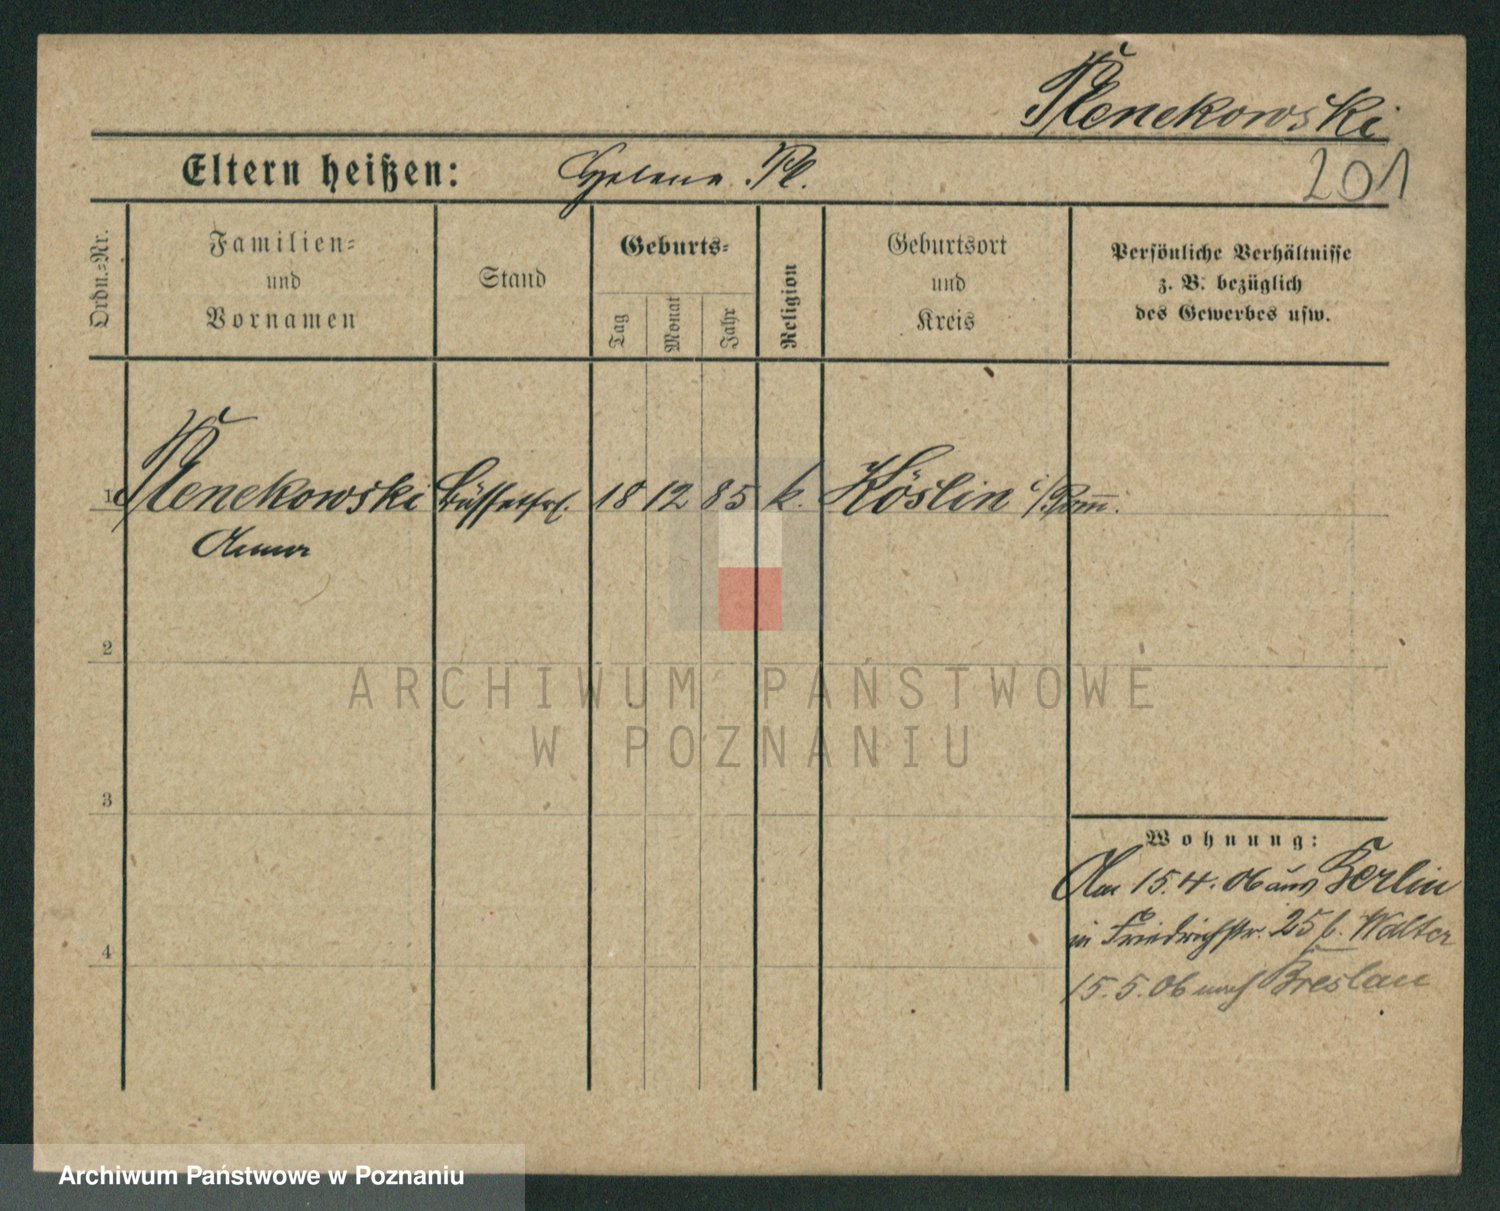 Plenekowski
Eltern heißen: Helene Pl.
201
Ordn.=Nr.
Familien=
und
Vornamen
Stand
Geburts=
Tag
Monat
Jahr
Religion
Geburtsort
und
Kreis
Persönliche Verhältnisse
z. B. bezüglich
des Gewerbes usw.
1 Plenekowski Büffetfrl. 18 12 85 k. Köslin i/Pom.
Anna
2
3
4
Wohnung:
Am 15.4.06 aus Berlin
in Friedrichstr. 25 b. Walter
15.5.06 nach Breslau
ARCHIWUM PAŃSTWOWE
W POZNANIU
Archiwum Państwowe w Poznaniu